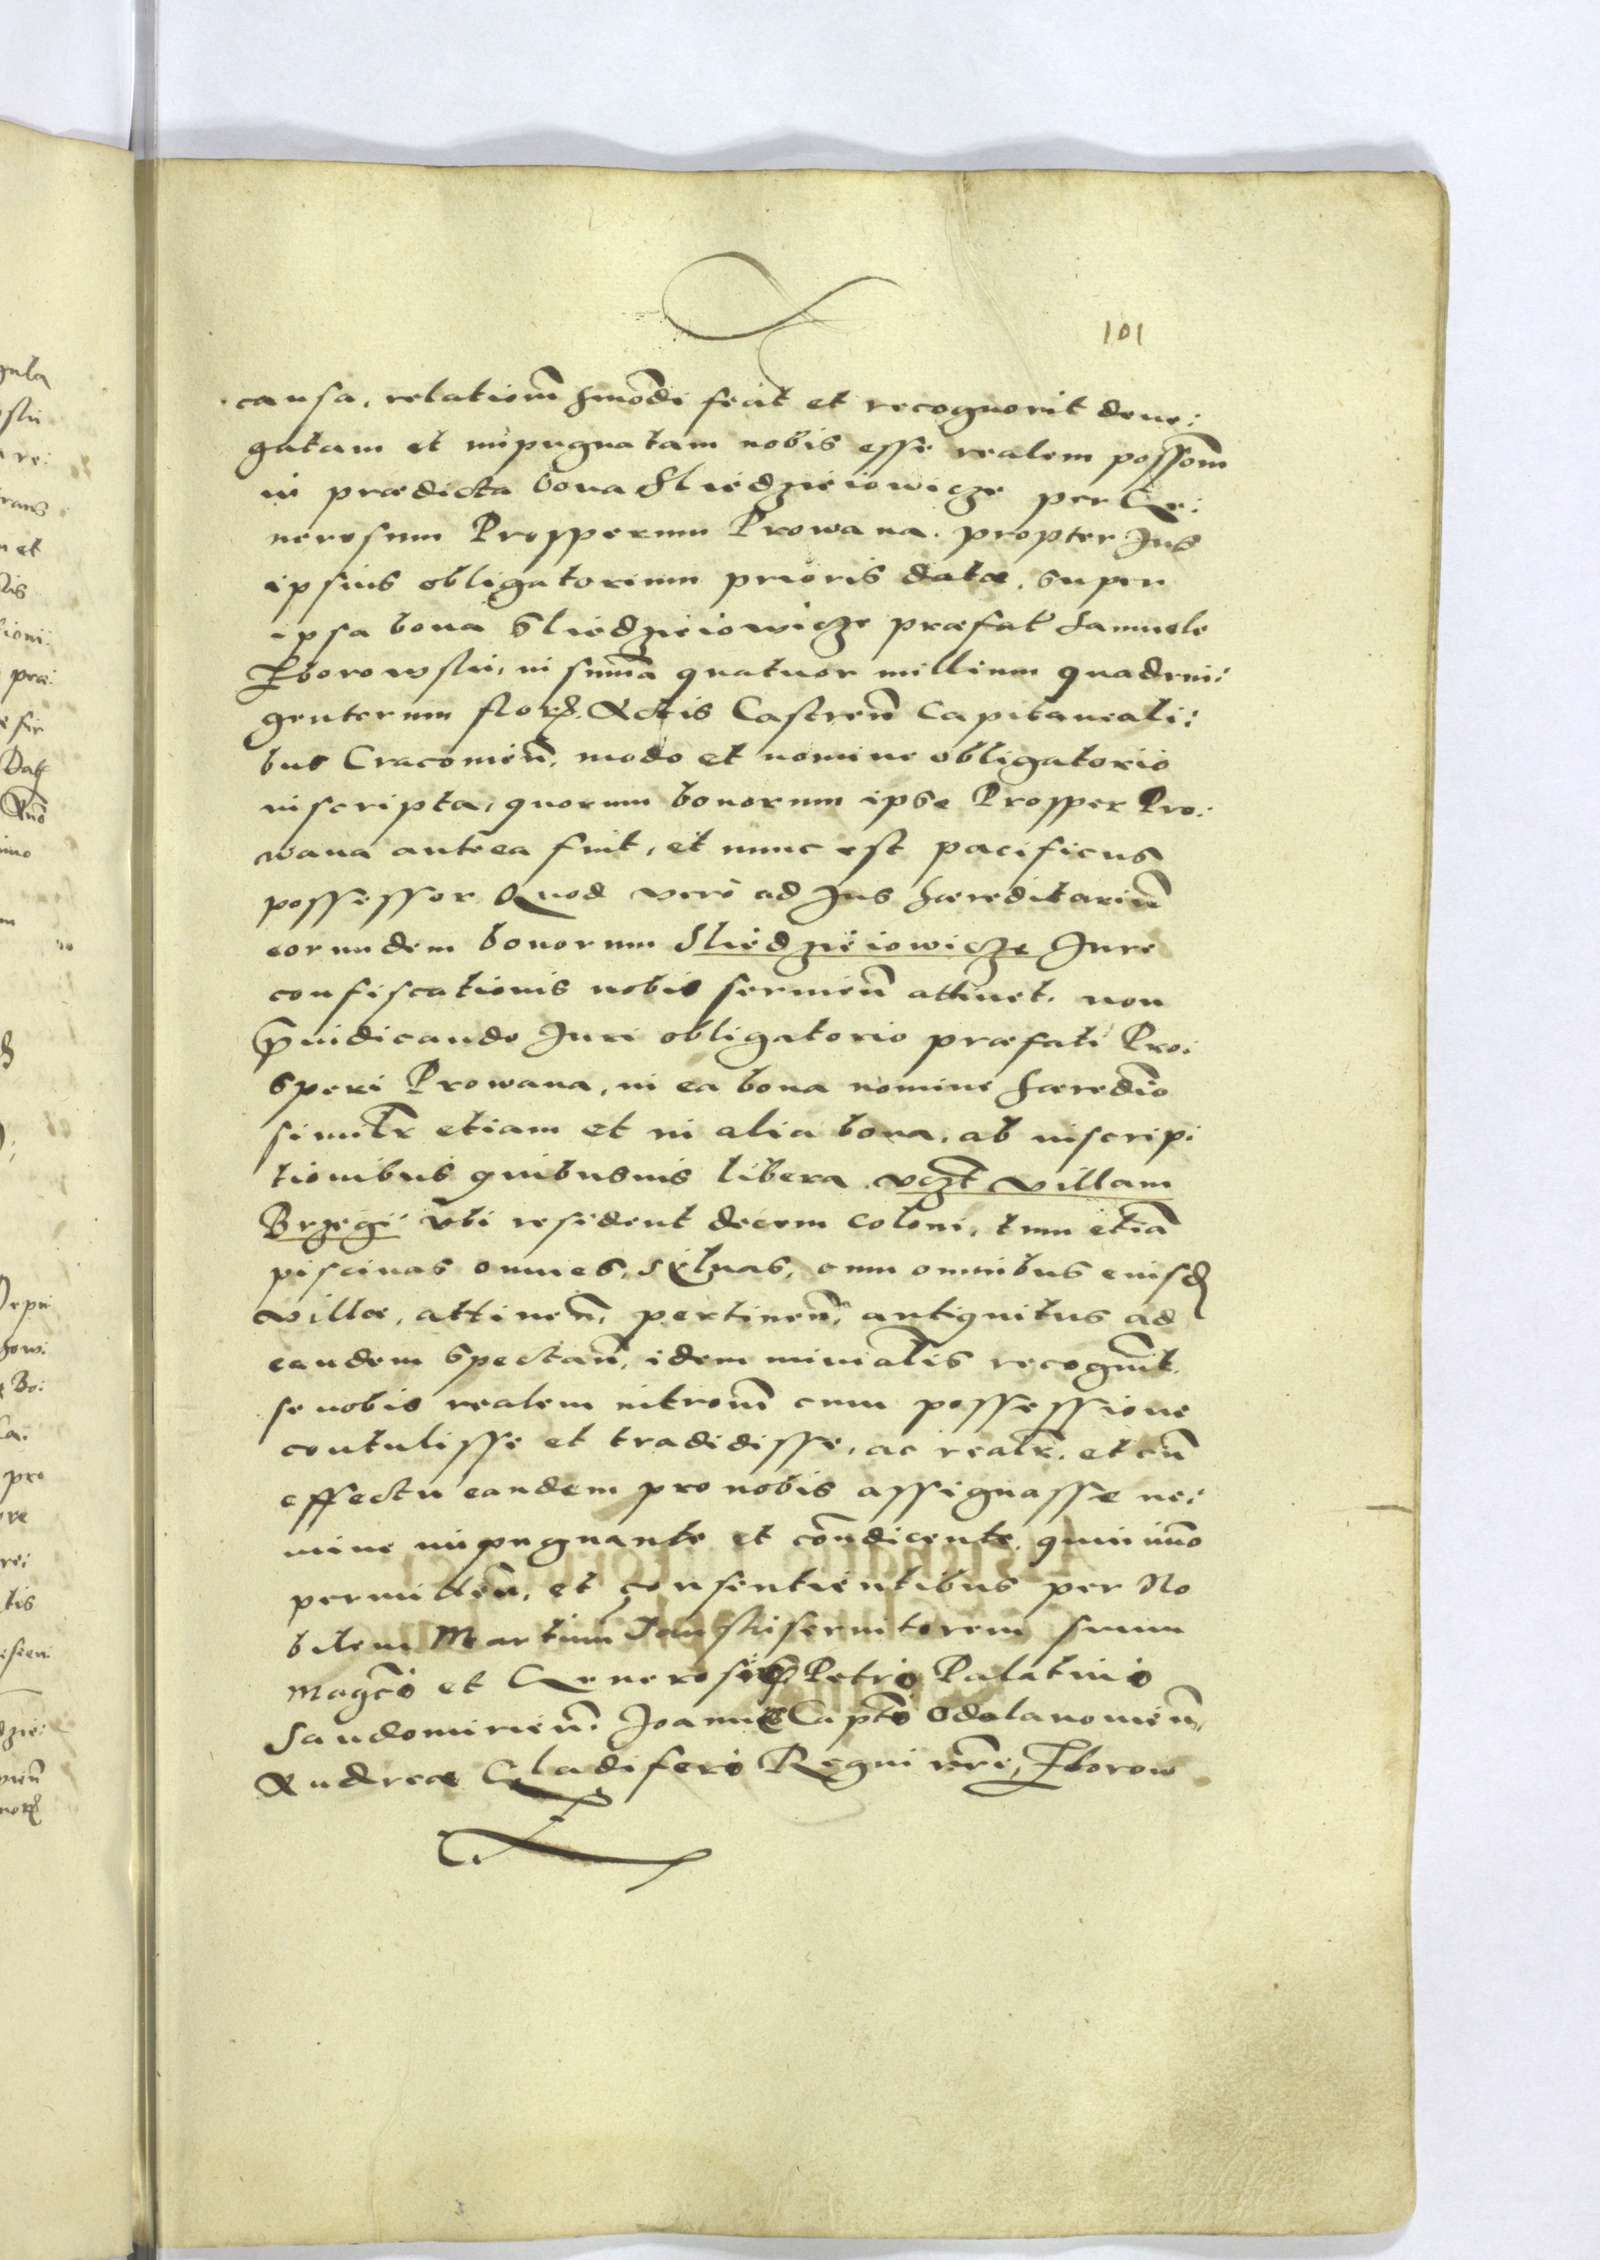 101
causa, relationẽ hmõdi fecit et recognovit dene:
gatam et impugnatam nobis esse realem possẽm
in prædicta bona Sliedzieiowicze per Ge:
nerosum Prosperum Prowana. propter Jus
ipsius obligatorium prioris datæ, super
ipsa bona Sliedzieiowicze præfat Samuele
Zborowski, in sum̃a quatuor millium quadrin:
gentorum flor. Actis Castreñ Capitaneali:
bus Cracovieñ. modo et nomine obligatorio
inscripta, quorum bonorum ipse Prosper Pro:
wana antea fuit, et nunc est pacificus
possessor Quod vero ad Jus hæreditariũ
eorundem bonorum Sliedzieiowicze Jure
confiscationis nobis servieñ attinet. non
p̃iudicando Juri obligatorio præfati Pro:
speri Prowana, in ea bona nomine hæredio
simĩlr etiam et in alia bona, ab inscrip:
tionibus quibusvis libera vczt villam
Brzegi vbi resident decem coloni, tum etiã
piscinas omnes, sylvas, cum omnibus eiusd
villæ, attineñ, pertineñ, antiquitus ad
eandem spectañ, idem miniãlis recognvit
se nobis realem intromĩ cum possessione
contulisse et tradidisse, ac realr̃. et cũ
effectu eandem pro nobis assignasse ne:
mine impugnante et cõndicente, quinim̃o
permitteñ, et consentientibus per No
bilem Martinũ Janski servitorem suum
Magcõ et Generosis Petro Palatino
Sandomirieñ. Joanne Captõ Odolanovieñ,
Andrea Gladifero Regni nr̃i, Zborow